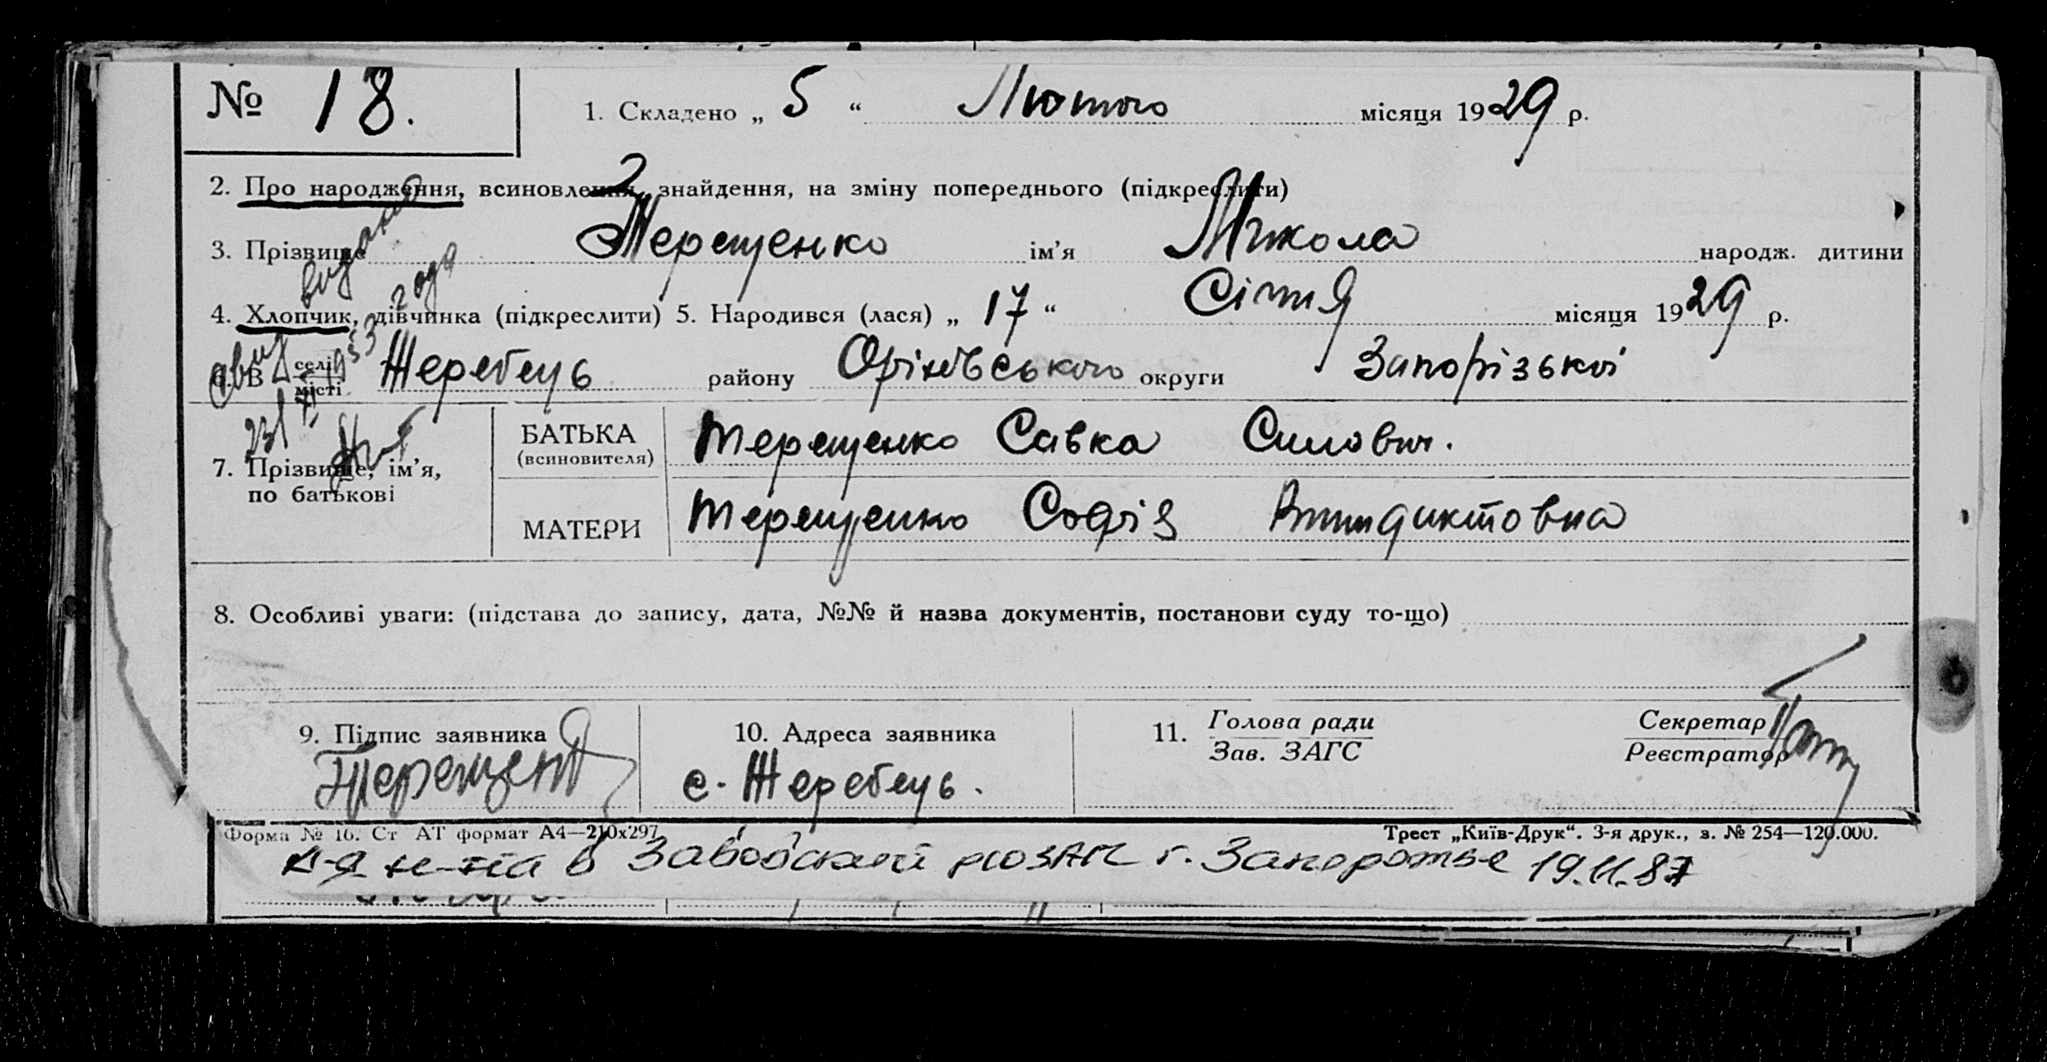 № 18.
1. Складено „ 5 “ Лютого місяця 1929 р.
2. Про народження, всиновлення, знайдення, на зміну попереднього (підкреслити)
3. Прізвище Терещенко ім’я Микола народж. дитини
4. Хлопчик, дівчинка (підкреслити) 5. Народився (лася) „ 17 “ Січня місяця 1929 р.
6. В селі місті Жеребець району Оріхівського округи Запорізької
видано
1953 года
7. Прізвище, ім’я, по батькові
БАТЬКА (всиновителя) Терещенко Савка Силович.
МАТЕРИ Терещенко Софія
8. Особливі уваги: (підстава до запису, дата, №№ й назва документів, постанови суду то-що)
9. Підпис заявника
10. Адреса заявника
11. Голова ради Зав. ЗАГС
Секретар Реєстратор
с. Жеребець.
Форма № 16. Ст АТ формат А4—210х297
Трест „Київ-Друк“. 3-я друк., з. № 254—120.000.
в Заводский г. Запорожье 19.11.87